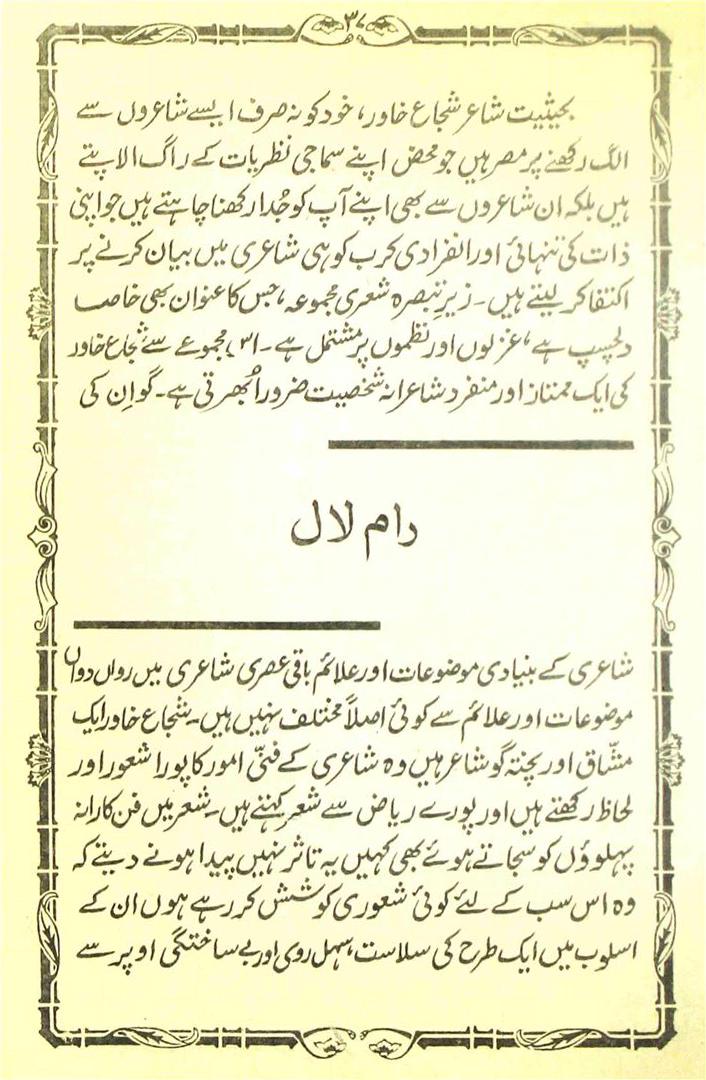 ۳۷
بحیثیت شاعر شجاع خاور، خود کو نہ صرف ایسے شاعروں سے
الگ رکھنے پر مصر ہیں جو محض اپنے سماجی نظریات کے راگ الاپتے
ہیں بلکہ ان شاعروں سے بھی اپنے آپ کو جُدا رکھنا چاہتے ہیں جو اپنی
ذات کی تنہائی اور انفرادی کرب کو ہی شاعری میں بیان کرنے پر
اکتفا کر لیتے ہیں۔ زیرِ تبصرہ شعری مجموعہ، جس کا عنوان بھی خاصا
دلچسپ ہے، غزلوں اور نظموں پر مشتمل ہے۔ اس مجموعے سے شجاع خاور
کی ایک ممتاز اور منفرد شاعرانہ شخصیت ضرور اُبھرتی ہے۔ گو اِن کی
رام لال
شاعری کے بنیادی موضوعات اور علائم باقی عصری شاعری میں رواں دواں
موضوعات اور علائم سے کوئی اصلاً مختلف نہیں ہیں۔ شجاع خاور ایک
مشّاق اور پختہ گو شاعر ہیں وہ شاعری کے فنّی امور کا پورا شعور اور
لحاظ رکھتے ہیں اور پورے ریاض سے شعر کہتے ہیں۔ شعر میں فن کارانہ
پہلوؤں کو سجاتے ہوئے بھی کہیں یہ تاثر نہیں پیدا ہونے دیتے کہ
وہ اس سب کے لئے کوئی شعوری کوشش کر رہے ہوں ان کے
اسلوب میں ایک طرح کی سلاست، سہل روی اور بے ساختگی اوپر سے